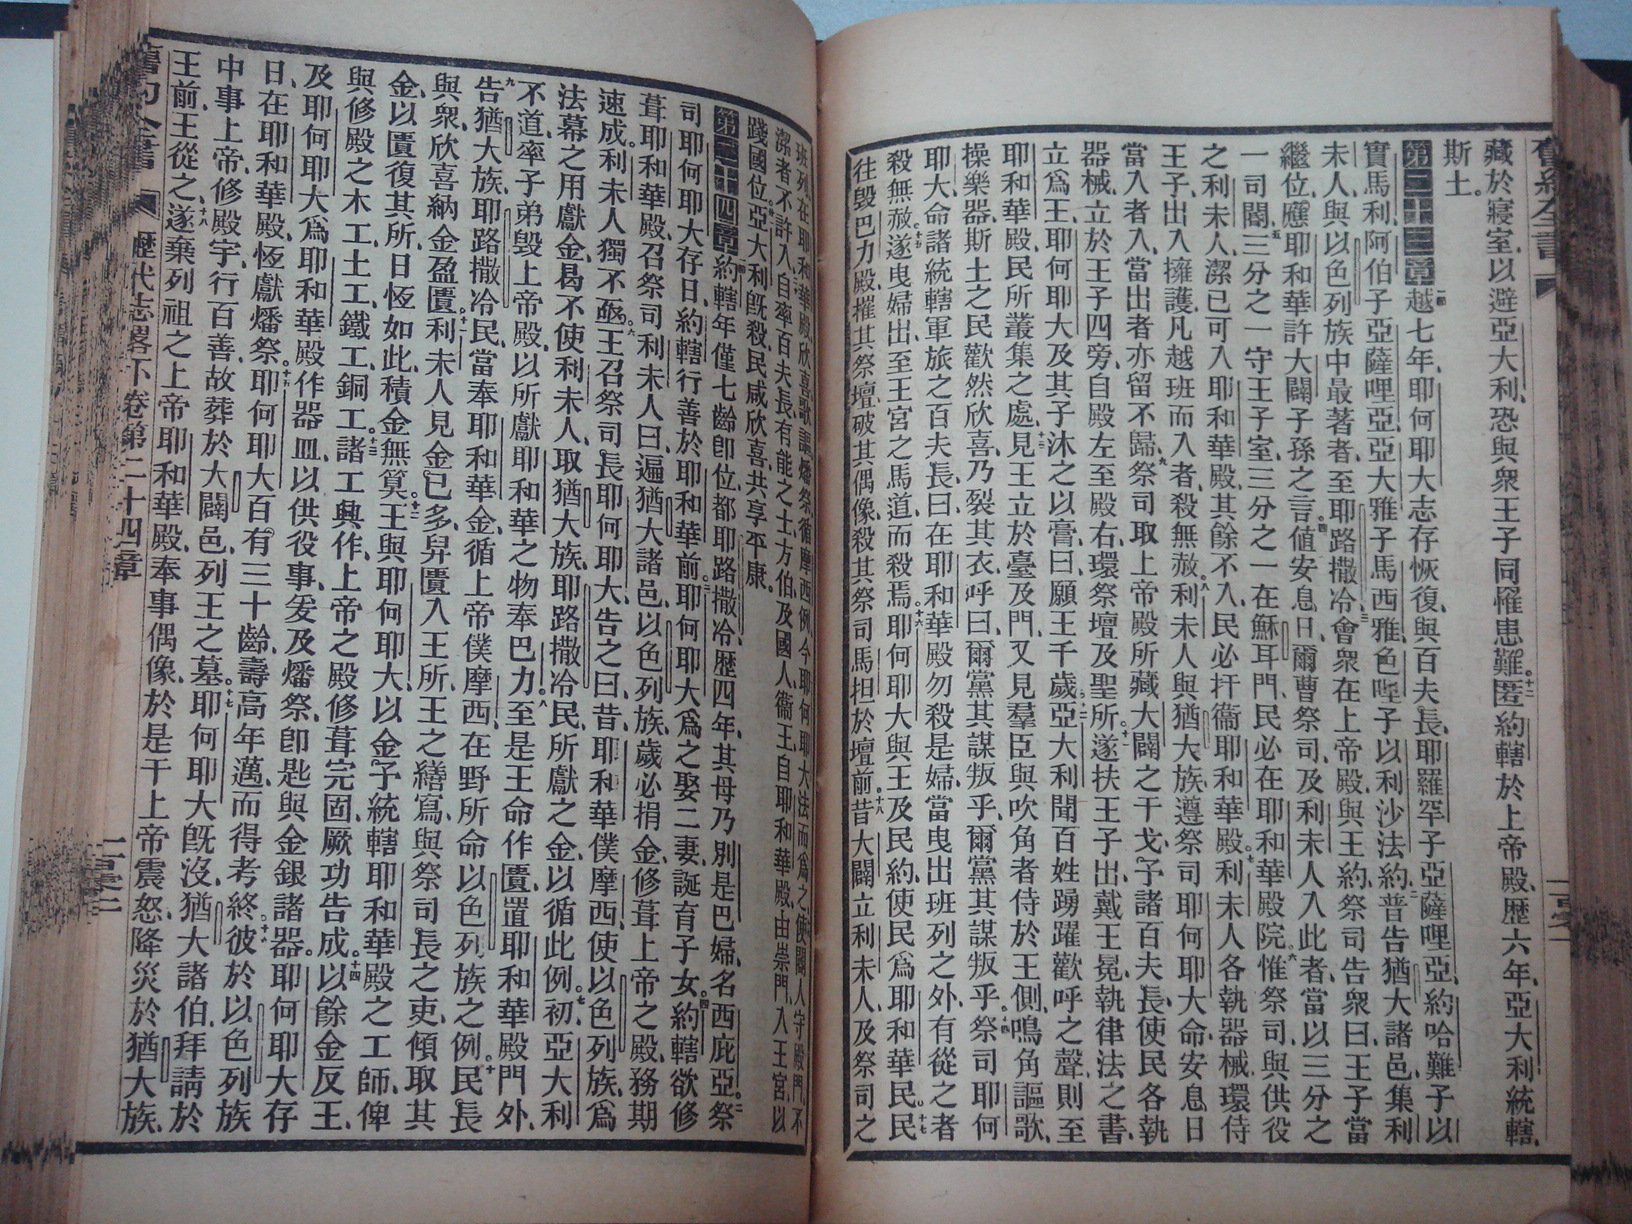 舊約全書
藏於寢室、以避亞大利、恐與衆王子同罹患難。十二匿約轄於上帝殿、歷六年、亞大利統轄
斯土。
第二十三章 一越七年、耶何耶大志存恢復、與百夫長、耶羅罕子亞薩哩亞、約哈難子以
實馬利、阿伯子亞薩哩亞、亞大雅子馬西雅、色哩子以利沙法約、二普告猶大諸邑、集利
未人、與以色列族中最著者、至耶路撒冷、三會衆在上帝殿、與王約、祭司告衆曰、王子當
繼位、應耶和華許大闢子孫之言、四値安息日、爾曹祭司、及利未人入此者、當以三分之
一司閽、五三分之一守王子室、三分之一在穌耳門、民必在耶和華殿院、六惟祭司與供役
之利未人、潔已可入耶和華殿、其餘不入、民必扞衞耶和華殿。七利未人各執器械、環侍
王子、出入擁護、凡越班而入者、殺無赦、八利未人與猶大族、遵祭司耶何耶大命、安息日
當入者入、當出者亦留不歸、九祭司取上帝殿所藏大闢之干戈、予諸百夫長、十使民各執
器械、立於王子四旁、自殿左至殿右、環祭壇及聖所、十一遂扶王子出、戴王冕、執律法之書、
立爲王、耶何耶大及其子沐之以膏、曰、願王千歲、十二亞大利聞百姓踴躍歡呼之聲、則至
耶和華殿、民所叢集之處、十三見王立於臺及門、又見羣臣與吹角者侍於王側、鳴角謳歌、
操樂器、斯土之民歡然欣喜、乃裂其衣、呼曰、爾黨其謀叛乎、爾黨其謀叛乎、十四祭司耶何
耶大命諸統轄軍旅之百夫長、曰、在耶和華殿勿殺是婦、當曳出班列之外、有從之者、
殺無赦。十五遂曳婦出、至王宮之馬道、而殺焉。十六耶何耶大與王及民約、使民爲耶和華民、十七民
往毀巴力殿、摧其祭壇、破其偶像、殺其祭司馬担於壇前、十八昔大闢立利未人、及祭司之
班列、在耶和華殿、欣喜歌謳、燔祭、循摩西例、今耶何耶大法而爲之、使閽人守殿門、不
潔者不許入、自率百夫長、有能之士、方伯、及國人、衞王、自耶和華殿、由崇門、入王宮、以
踐國位、亞大利旣殺、民咸欣喜、共享平康。
第二十四章 約轄年僅七齡卽位、都耶路撒冷、歷四年、其母乃別是巴婦、名西庇亞。二祭
司耶何耶大存日、約轄行善於耶和華前、三耶何耶大爲之娶二妻、誕育子女、四約轄欲修
葺耶和華殿、召祭司利未人曰、遍猶大諸邑、以色列族、歲必捐金、修葺上帝之殿、務期
速成、利未人獨不亟、六王召祭司長耶何耶大、告之曰、昔耶和華僕摩西、使以色列族、爲
法幕之用獻金、曷不使利未人取猶大族、耶路撒冷民、所獻之金、以循此例。七初亞大利
不道、率子弟毀上帝殿、以所獻耶和華之物奉巴力、八至是王命作匱、置耶和華殿門外、
九告猶大族耶路撒冷民、當奉耶和華金、循上帝僕摩西、在野所命以色列族之例、十民長
與衆欣喜、納金盈匱、十一利未人見金已多、舁匱入王所、王之繕寫、與祭司長之吏、傾取其
金、以匱復其所、日恆如此、積金無算、十二王與耶何耶大、以金予統轄耶和華殿之工師、俾
與修殿之木工、土工、鐵工、銅工、十三諸工興作、上帝之殿修葺完固、厥功告成、十四以餘金反王、
及耶何耶大、爲耶和華殿作器皿、以供役事、爰及燔祭、卽匙與金銀諸器、耶何耶大存
日、在耶和華殿、恆獻燔祭。十五耶何耶大百有三十齡、壽高年邁、而得考終、十六彼於以色列族
中、事上帝、修殿宇、行百善、故葬於大闢邑、列王之墓、十七耶何耶大旣沒、猶大諸伯、拜請於
王前、王從之、十八遂棄列祖之上帝耶和華殿、奉事偶像、於是干上帝震怒、降災於猶大族、
舊約全書 歷代志畧下 卷第二十四章